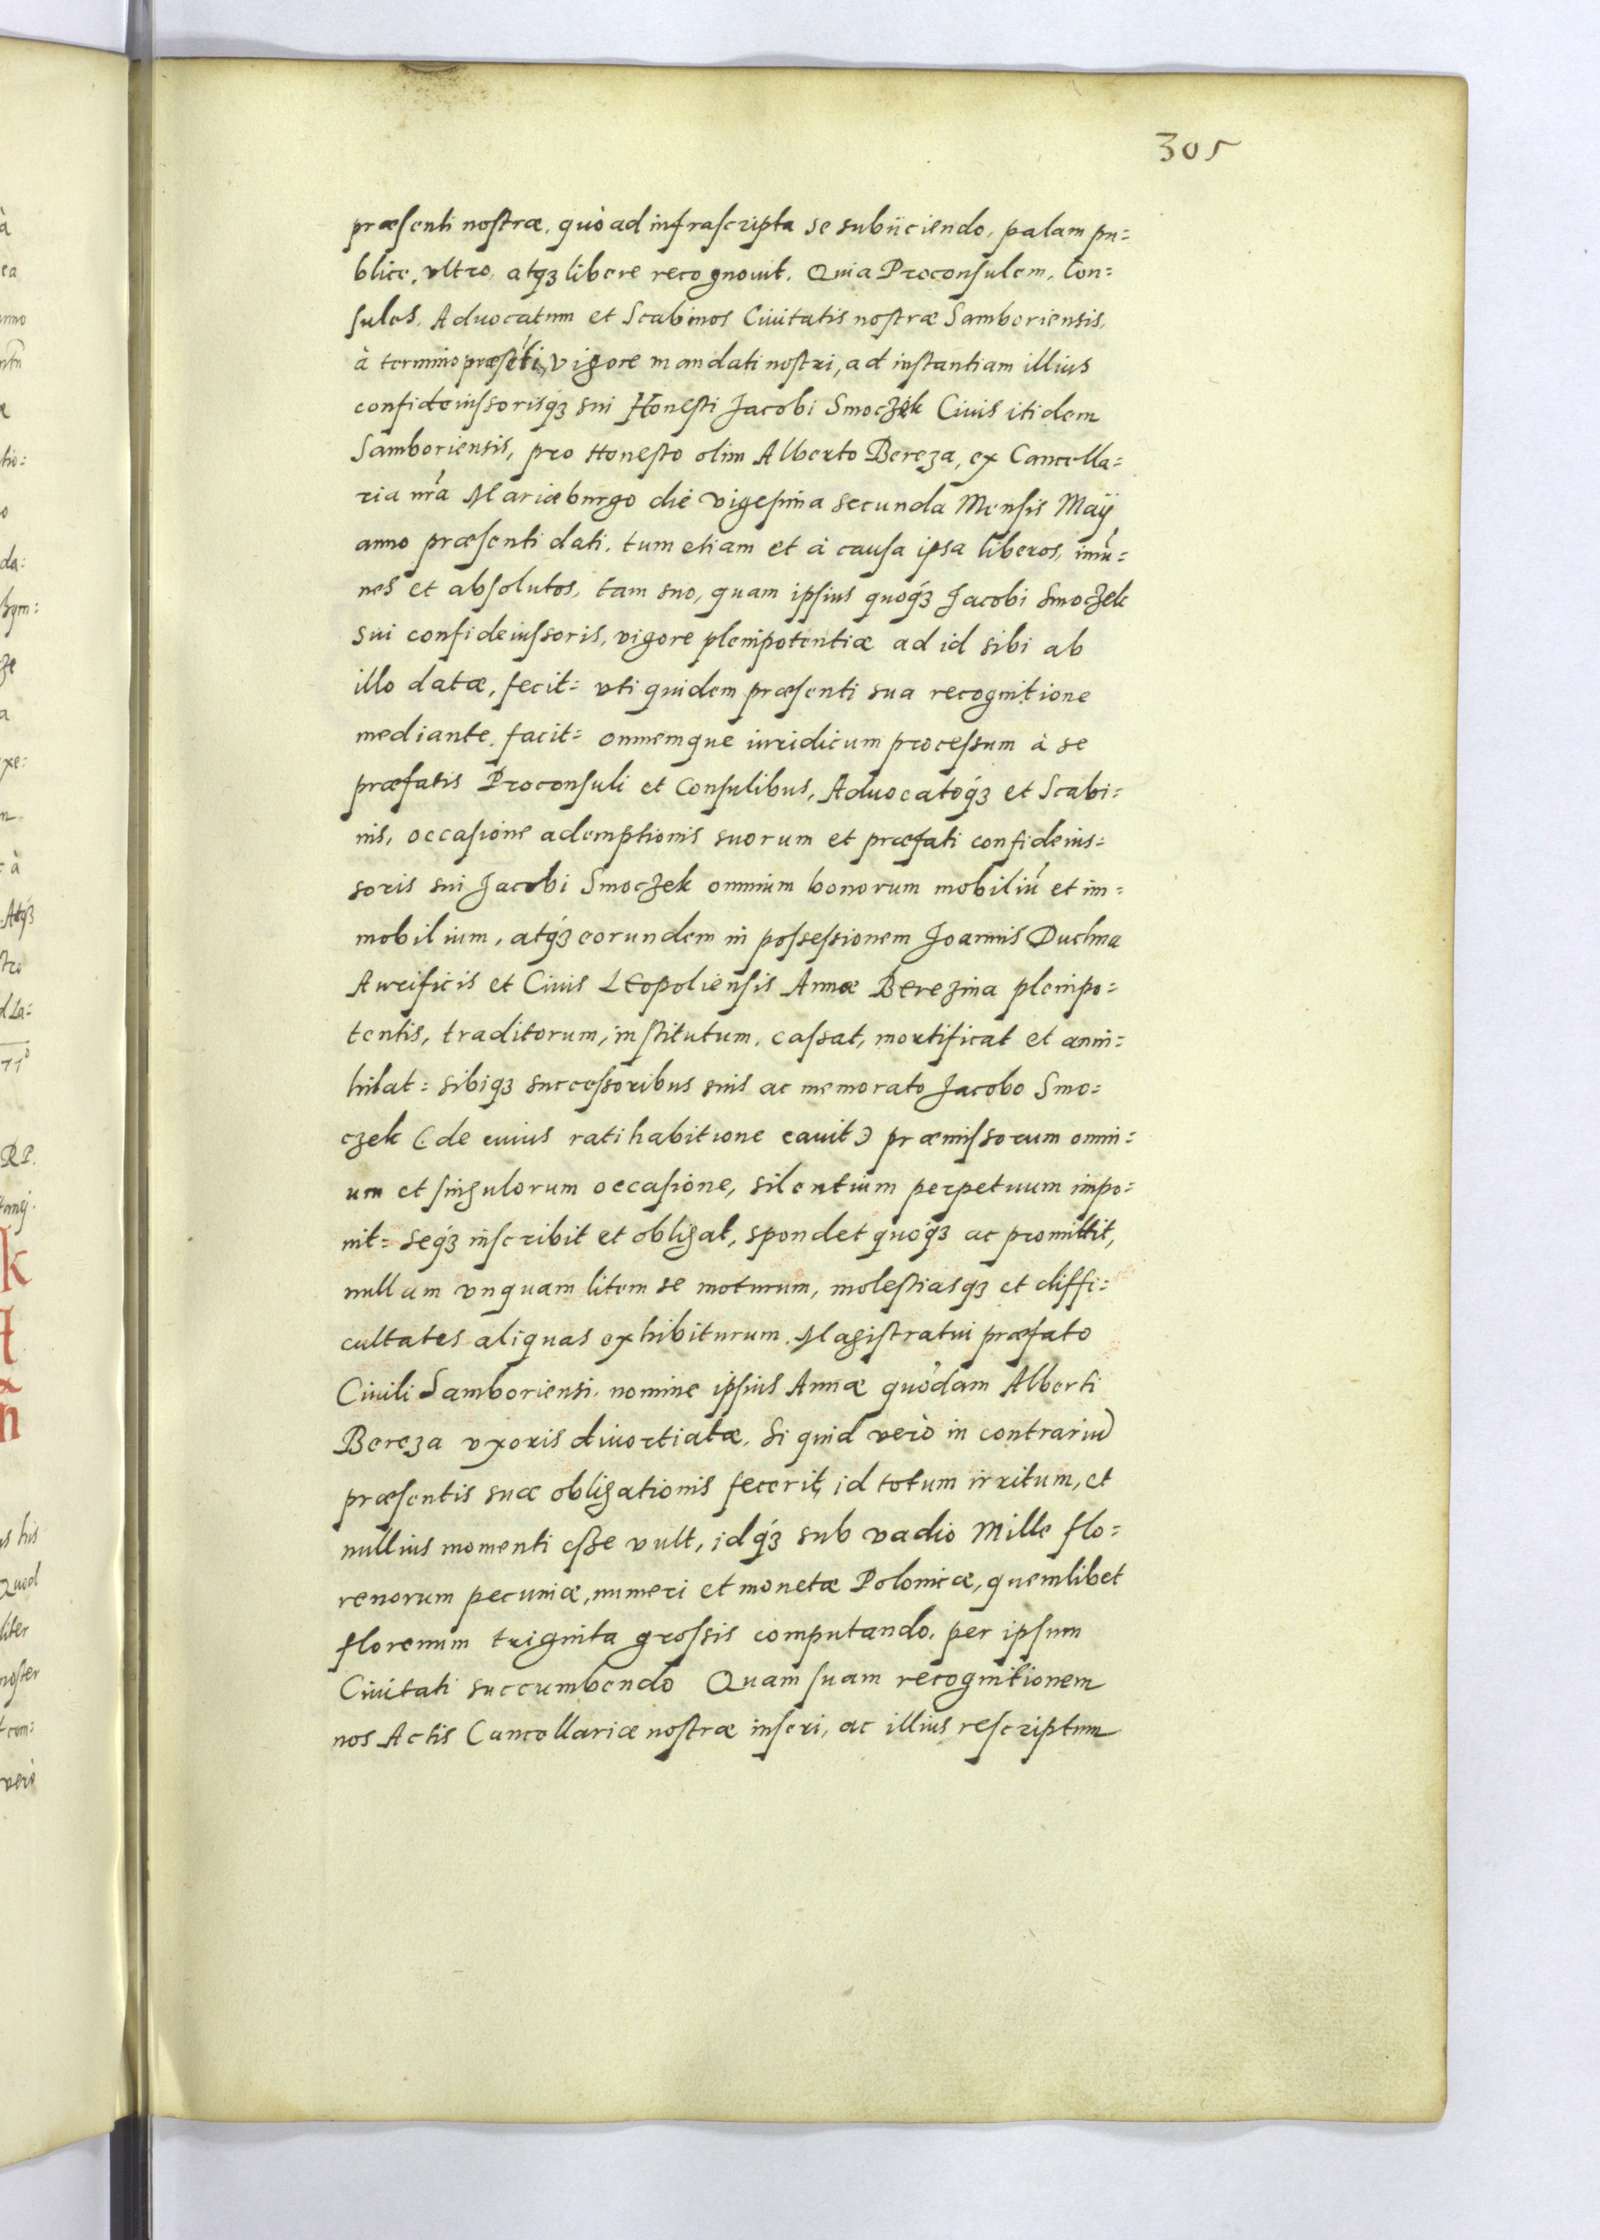 305
præsenti nostræ, quò ad infrascripta se subiiciendo, palam pu=
blice, vltro, atq₃ libere recognouit. Quia Proconsulem, Con=
sules, Aduocatum et Scabinos Ciuitatis nostræ Samboriensis,
à termino præsẽti, vigore mandati nostri, ad instantiam illius
confideiussorisq́₃ sui Honesti Jacobi Smoczek Ciuis itidem
Samboriensis, pro Honesto olim Alberto Bereza, ex Cancella=
ria nr̃a Mariæburgo die vigesima secunda Mensis Maÿ
anno præsenti dati, tum etiam et à causa ipsa liberos, imũ=
nes et absolutos, tam suo, quam ipsius quoq́₃ Jacobi Smoczek
sui confideiussoris, vigore plenipotentiæ ad id sibi ab
illo datæ, fecit= vti quidem præsenti sua recognitione
mediante, facit= omnemque iuridicum processum à se
præfatis Proconsuli et Consulibus, Aduocatoq́₃ et Scabi=
nis, occasione ademptionis suorum et præfati confideius=
soris sui Jacobi Smoczek omnium bonorum mobiliũ et im=
mobilium, atq́₃ eorundem in possessionem Joannis Duchna
Aurificis et Ciuis Leopoliensis Annæ Berezina plenipo=
tentis, traditorum, institutum, cassat, mortificat et anni=
hilat= sibiq₃ successoribus suis ac memorato Jacobo Smo=
czek (de cuius ratihabitione cauit) præmissorum omni=
um et singulorum occasione, silentium perpetuum impo=
nit= seq́₃ inscribit et obligat, spondet quoq́₃ ac promittit,
nullam vnquam litem se moturum, molestiasq₃ et diffi=
cultates aliquas exhibiturum Magistratui præfato
Ciuili Samboriensi, nomine ipsius Annæ quõdam Alberti
Bereza vxoris diuortiatæ. Si quid verò in contrariũ
præsentis suæ obligationis fecerit, id totum irritum, et
nullius momenti esse vult, idq́₃ sub vadio Mille flo=
renorum pecuniæ, numeri et monetæ Polonicæ, quemlibet
florenum triginta grossis computando, per ipsum
Ciuitati succumbendo Quam suam recognitionem
nos Actis Cancellariæ nostræ inseri, ac illius rescriptum